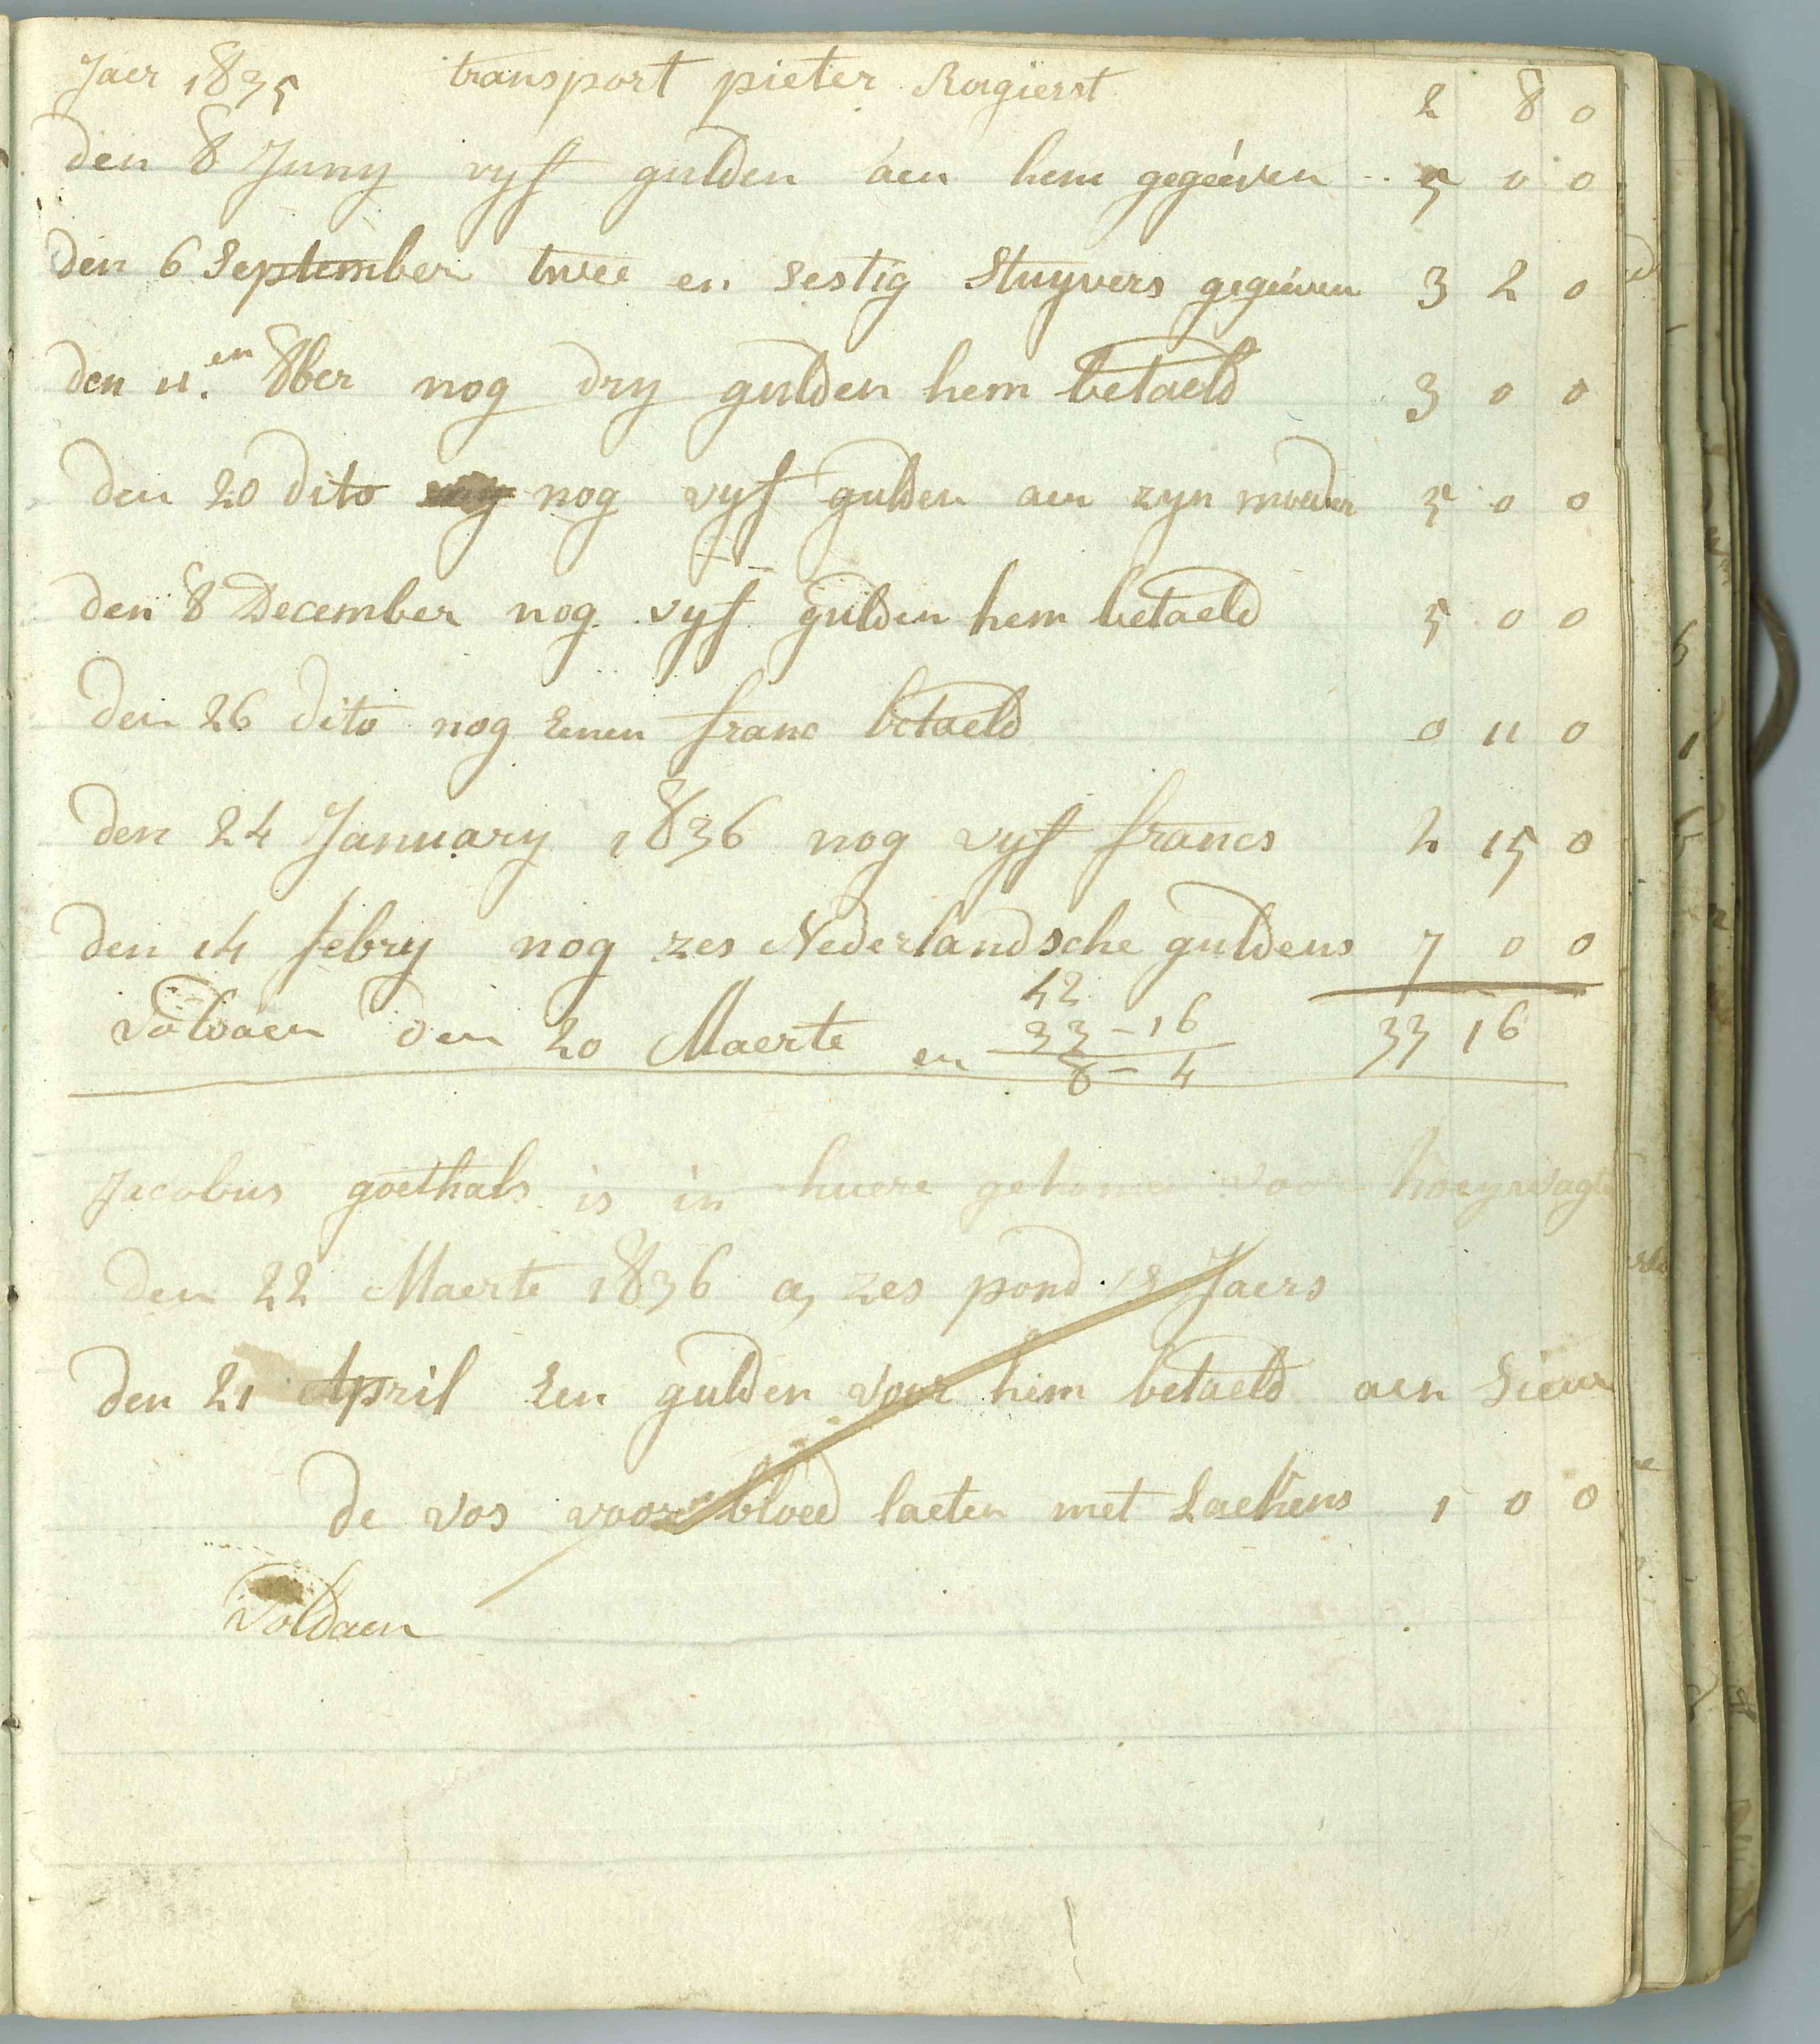 Jaer 1835 transport pieter Rogierst 2 8 0
den 8 Juny vyf gulden aen hem gegeéven 5 0 0
den 6 September twee en sestig Stuyvers gegeéven 3 2 0
den 11.en 8ber nog dry gulden hem betaeld 3 0 0
den 20 dito nog vyf gulden aen zyn moeder 5 0 0
den 8 December nog vyf gulden hem betaeld 5 0 0
den 26 dito nog Eenen franc betaeld 0 11 0
den 24 January 1836 nog vyf francs 2 15 0
den 14 febry nog zes Nederlandsche guldens 7 0 0
42
Voldaen den 20 Maerte en 33-16 33 16
8-4
Jacobus goethals is in huere gekomen voor koeywagter
den 22 Maerte 1836 a, zes pond 's Jaers
den 21 April Een gulden voor hem betaeld aen Sieur
de vos voor bloed laeten met Laekens 1 0 0
Voldaen